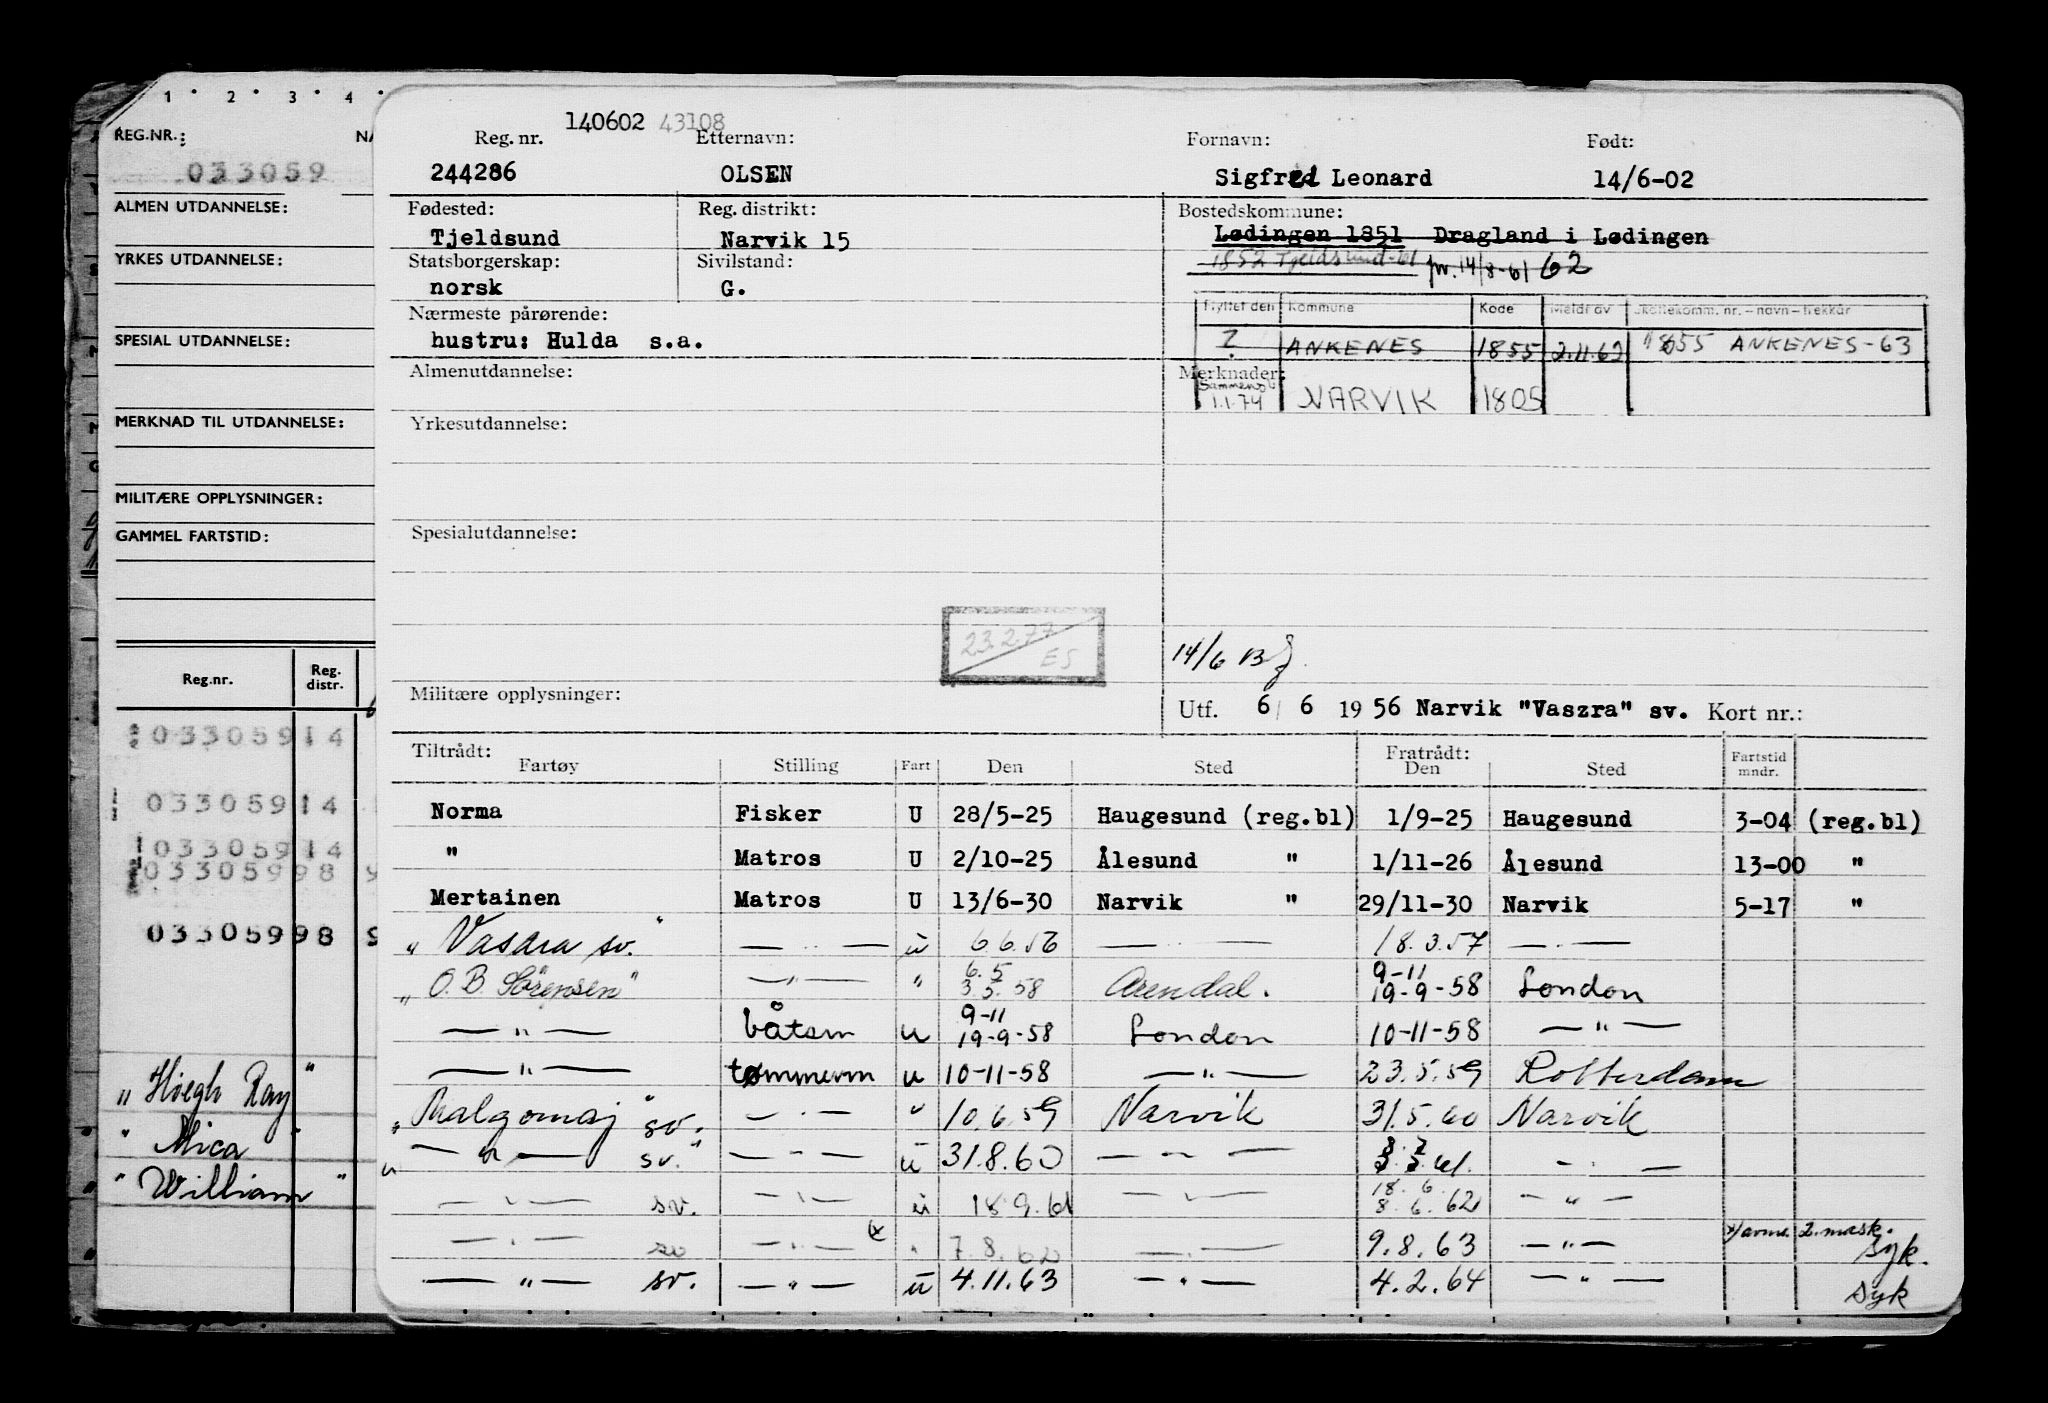 1 · 2 · 3 · 4 ·
REG.NR.:
033059
ALMEN UTDANNELSE:
YRKES UTDANNELSE:
SPESIAL UTDANNELSE:
MERKNAD TIL UTDANNELSE:
MILITÆRE OPPLYSNINGER:
GAMMEL FARTSTID:
Reg.nr. Reg. distr.
03305914
03305914
03305914
03305998 9
03305998 9
„ Høegh Ray "
" Mica "
" William "
140602 43108
Reg. nr. Etternavn: Fornavn: Født:
244286 OLSEN Sigfred Leonard 14/6-02
Fødested: Reg. distrikt: Bostedskommune:
Tjeldsund Narvik 15 Lødingen 1851 Dragland i Lødingen
Statsborgerskap: Sivilstand: 1852 Tjeldsund-61 pr. 14/8-61 62
norsk G.
Nærmeste pårørende: Flyttet den Kommune Kode Meldt av Skattekomm. nr. – navn – trekkår
hustru: Hulda s.a. ? ANKENES 1855 2.11.63 1855 ANKENES-63
Almenutdannelse: Merknader:
1.1.74 NARVIK 1805
Yrkesutdannelse:
Spesialutdannelse:
23.2.77
ES
14/6
Militære opplysninger: Utf. 6/ 6 19 56 Narvik "Vaszra" sv. Kort nr.:
Tiltrådt: Fratrådt:
Fartøy Stilling Fart Den Sted Den Sted Fartstid mndr.
Norma Fisker U 28/5-25 Haugesund (reg.bl) 1/9-25 Haugesund 3-04 (reg.bl)
" Matros U 2/10-25 Ålesund " 1/11-26 Ålesund 13-00 "
Mertainen Matros U 13/6-30 Narvik " 29/11-30 Narvik 5-17 "
" Vasara sv. " — " — u 6.6.56 — " — 18.3.57 — " —
„ O.B. Sörensen" — " — " 6.5 3.5.58 Arendal. 9-11 19-9-58 London
— " — båtsm u 9-11 19-9-58 London 10-11-58 — " —
— " — tømmerm u 10-11-58 — " — 23.5.59 Rotterdam
„ Malgomaj " sv. — " — " 10.6.59 Narvik 31.5.60 Narvik
" — " — sv. " — " — u 31.8.60 — " — 8.2 3.3.61. — " —
— " — sv. — " — u 18.9.61 — " — 18.6. 8.6.62 — " —
— " — sv — " — x " 7.8.62 — " — 9.8.63 — " — x) avm. 2. mask. Syk.
— " — sv. — " — u 4.11.63 — " — 4.2.64 — " — Syk